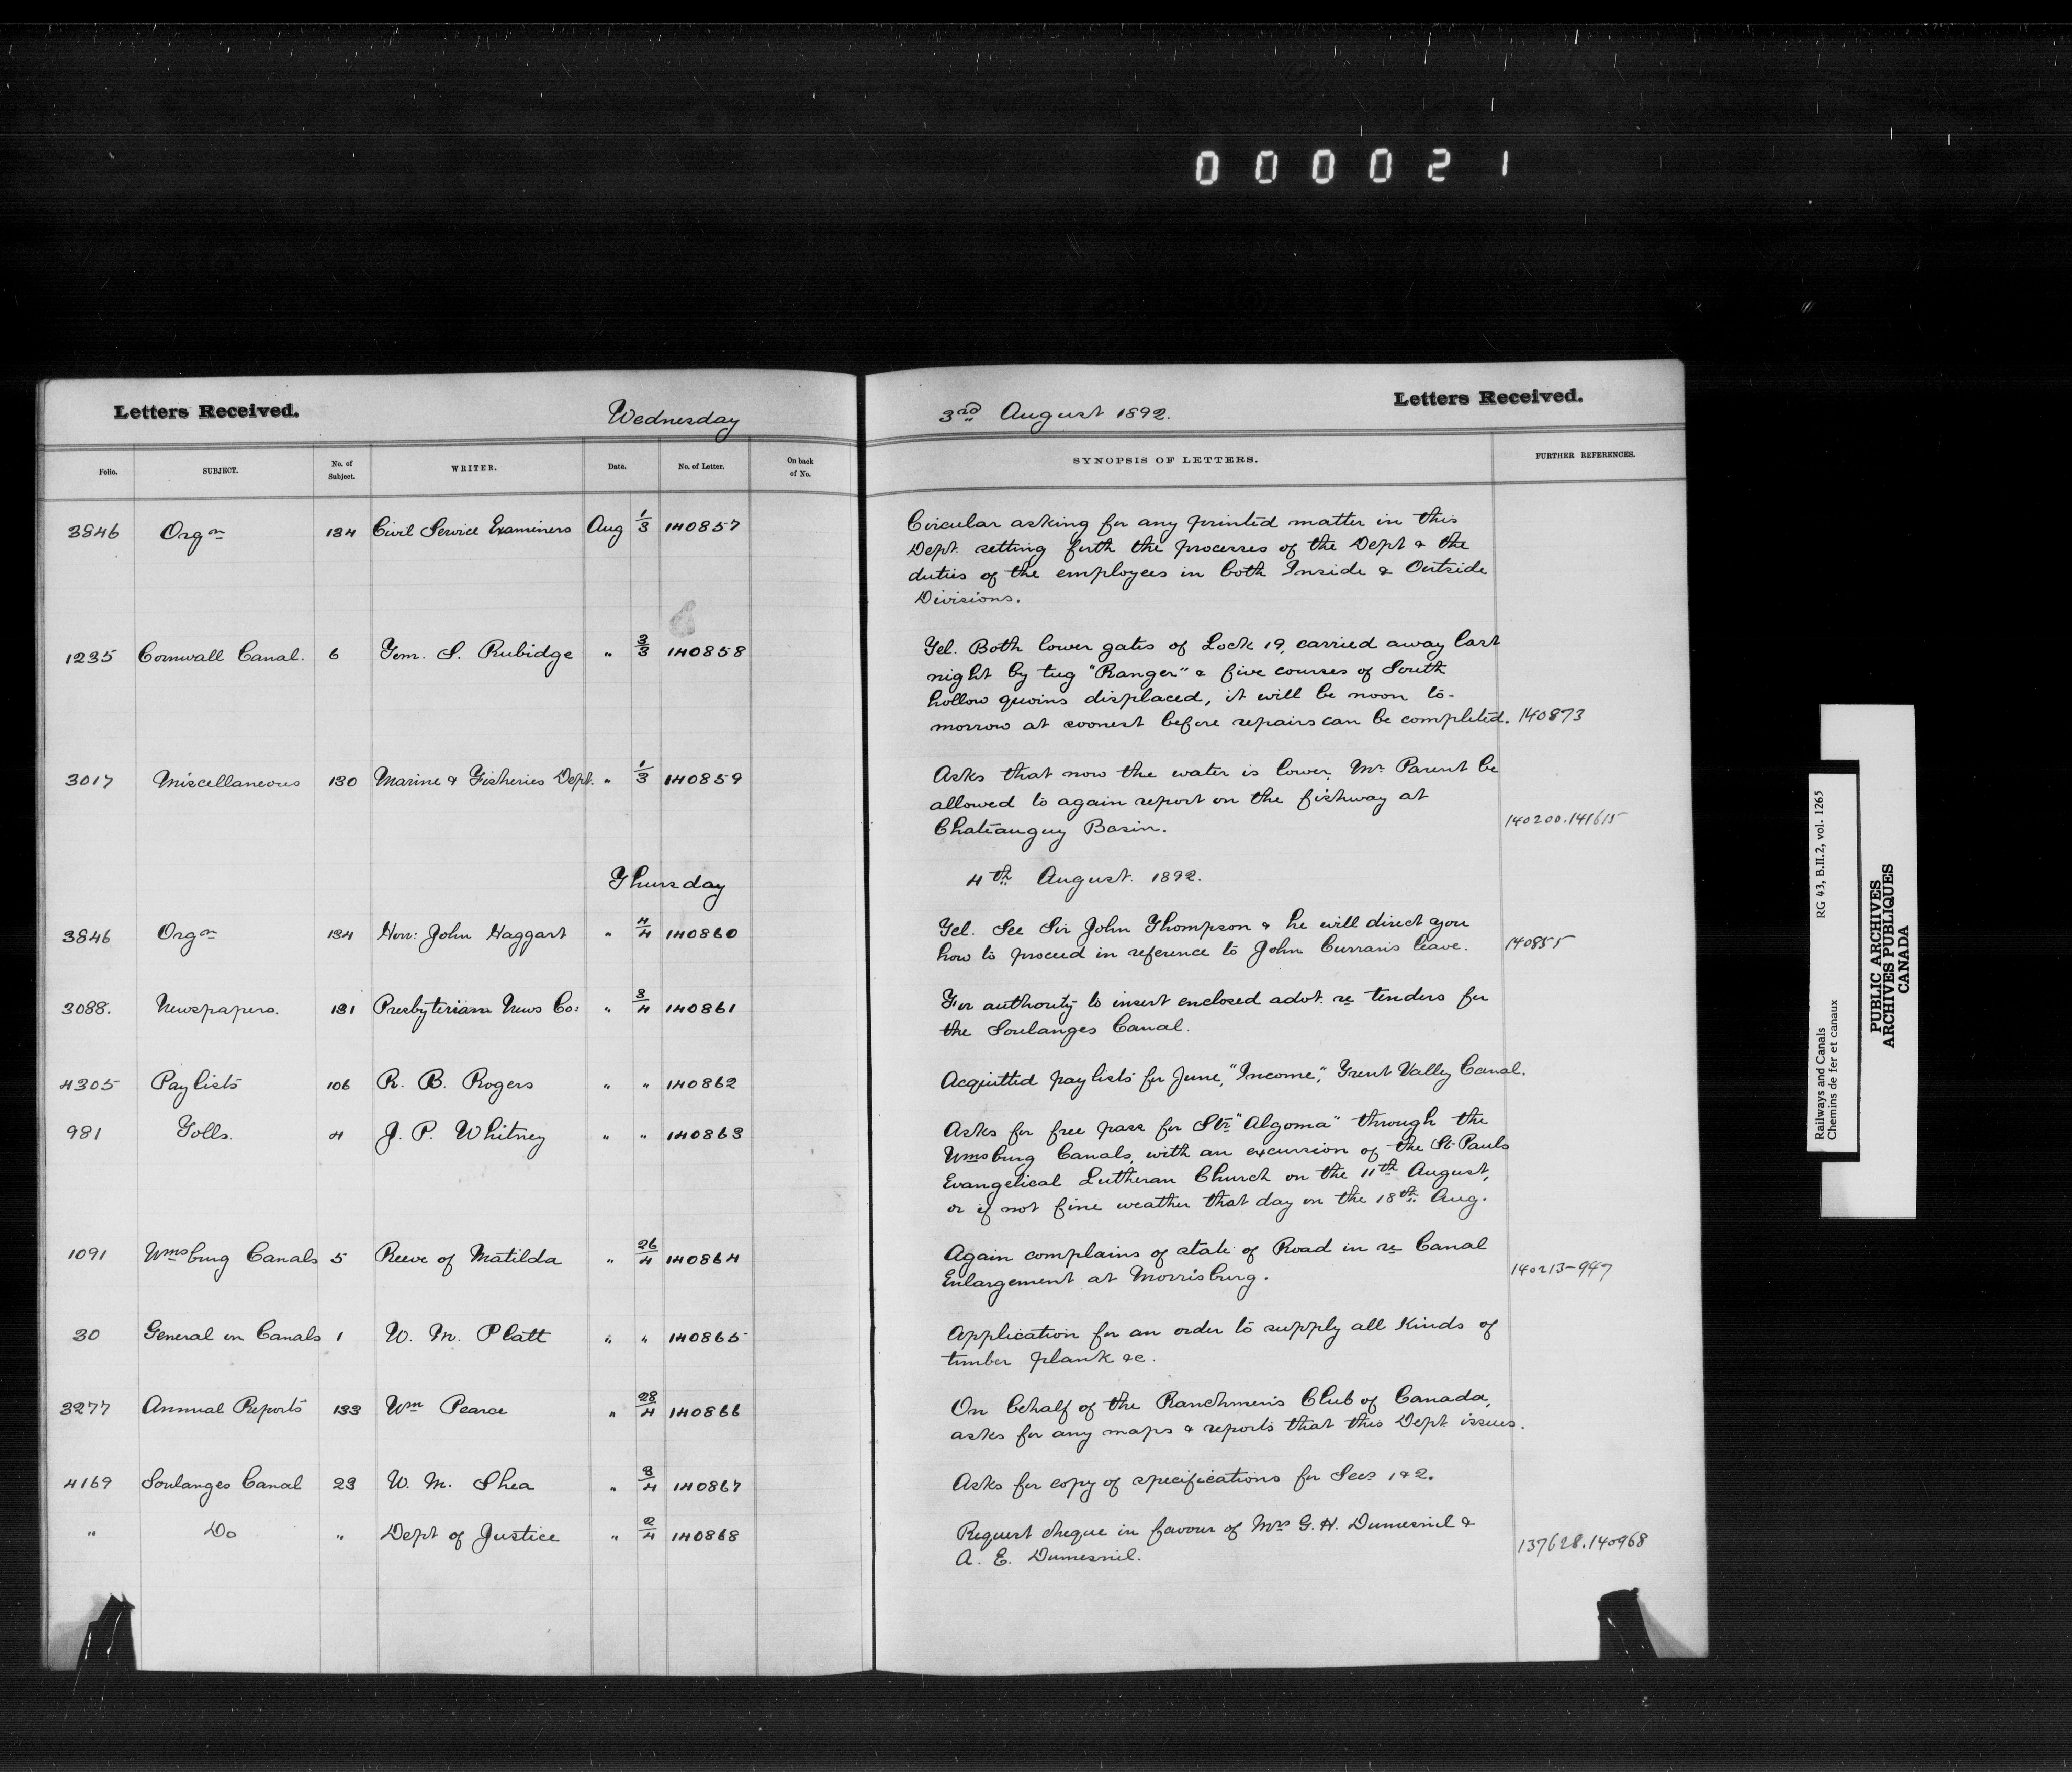 000021
Letters Received.
Wednesday
3rd August 1892.
Letters Received.
Folio. SUBJECT. No. of Subject. WRITER. Date. No. of Letter. On back of No. SYNOPSIS OF LETTERS. FURTHER REFERENCES.
3846 Orgn 134 Civil Service Examiners Aug 1/3 140857
Circular asking for any printed matter in this
Dept. setting forth the processes of the Dept & the
duties of the employees in both Inside & Outside
Divisions.
1235 Cornwall Canal. 6 Tom. S. Rubidge " 3/3 140858
Tel. Both lower gates of Lock 19, carried away last
night by tug "Ranger" & five courses of South
hollow quoins displaced, it will be noon to-
morrow at soonest before repairs can be completed. 140873
3017 Miscellaneous 130 Marine & Fisheries Dept. " 1/3 140859
Asks that now the water is lower, Mr Parent be
allowed to again report on the fishway at
Chateauguy Basin. 140200.141615
Thursday
4th August. 1892.
3846 Orgn 134 Hon: John Haggart " 4/4 140860
Tel. See Sir John Thompson & he will direct you
how to proceed in reference to John Curran's leave. 140855
3088. Newspapers. 131 Presbyterian News Co: " 3/4 140861
For authority to insert enclosed advt. re tenders for
the Soulanges Canal.
4305 Paylists 106 R. B. Rogers " " 140862
Acquitted paylists for June, "Income", Trent Valley Canal.
981 Tolls. 4 J. P. Whitney " " 140863
Asks for free pass for Str "Algoma" through the
Wmsburg Canals, with an excursion of the St Pauls
Evangelical Lutheran Church on the 11th August,
or if not fine weather that day on the 18th Aug.
1091 Wmsburg Canals 5 Reeve of Matilda " 26/4 140864
Again complains of state of Road in re Canal
Enlargement at Morrisburg. 140213-947
30 General on Canals 1 W. M. Platt " " 140865
Application for an order to supply all kinds of
timber plank &c.
3277 Annual Reports 133 Wm Pearce " 28/4 140866
On behalf of the Ranchmen's Club of Canada,
asks for any maps & reports that this Dept. issues.
4169 Soulanges Canal 23 W. M. Shea " 3/4 140867
Asks for copy of specifications for Secs 1 & 2.
" Do " Dept of Justice " 2/4 140868
Request cheque in favour of Mrs G. H. Dumesnil &
A. E. Dumesnil. 137628.140968
Railways and Canals RG 43, B.II.2, vol. 1265
Chemins de fer et canaux
PUBLIC ARCHIVES
ARCHIVES PUBLIQUES
CANADA